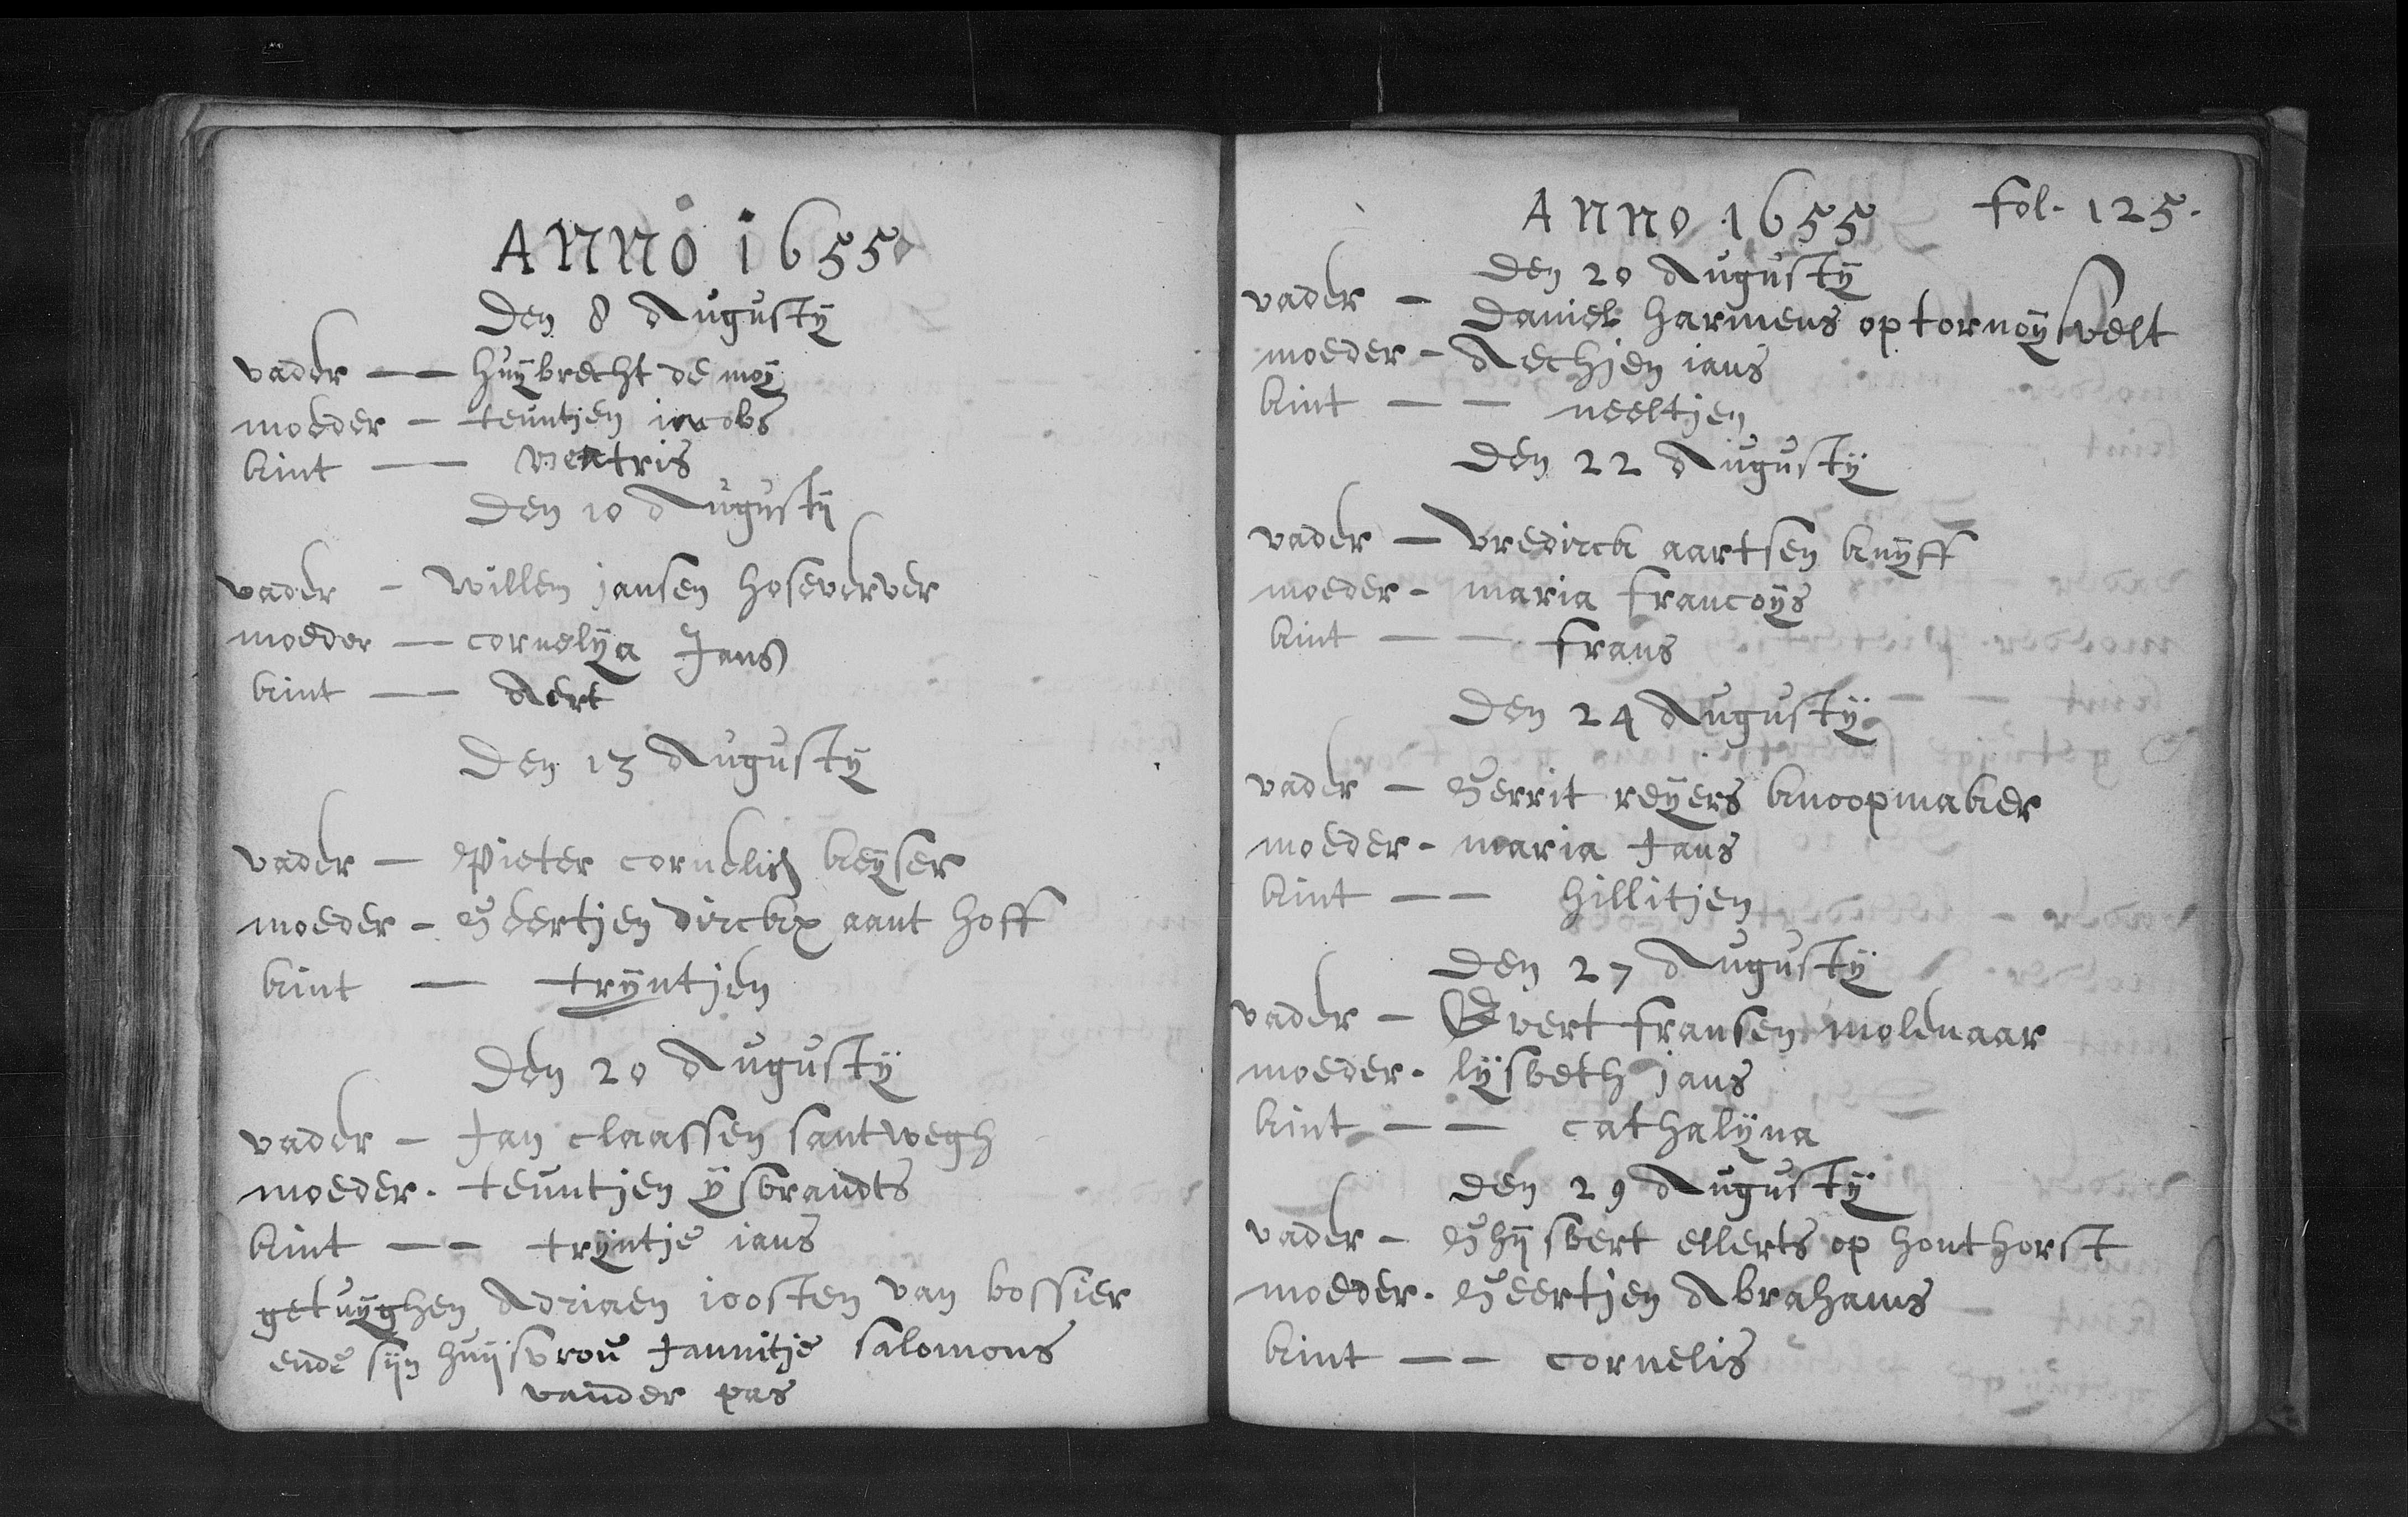 Anno 1655
Den 8 Augusty
vader — huÿbrecht de moÿ
moeder — teuntjen iacobs
kint —
Den 10 Augusty
vader — willem jansen hoseverver
moeder — cornelÿa Jans
kint — Aert
Den 13 Augusty
vader — Pieter cornelisz keÿser
moeder — Geertjen dirckx aant hoff
kint — trÿntjen
Den 20 Augustÿ
vader — Jan claassen santwegh
moeder. teuntjen ÿsbrandts
kint — — trÿntje ians
getuÿghen Adriaen ioosten van bossier
ende sÿn huÿsvrou Jannitje salomons
vander pas
Anno 1655 fol. 125.
Den 20 Augustÿ
vader — Daniel harmens op tornoÿsvelt
moeder — Aechjen ians
kint — — neeltjen
Den 22 Augustÿ
vader — vredirck aartsen knÿff
moeder — maria francoÿs
kint — — frans
Den 24 Augustÿ
vader — Gerrit reÿers knoopmaker
moeder — maria Jans
kint — — hillitjen
Den 27 Augustÿ
vader — Evert fransen molenaar
moeder. lÿsbeth jans
kint — — cathalÿna
Den 29 Augustÿ
vader — Ghÿsbert ellerts op honthorst
moeder. Geertjen Abrahams
kint — — cornelis